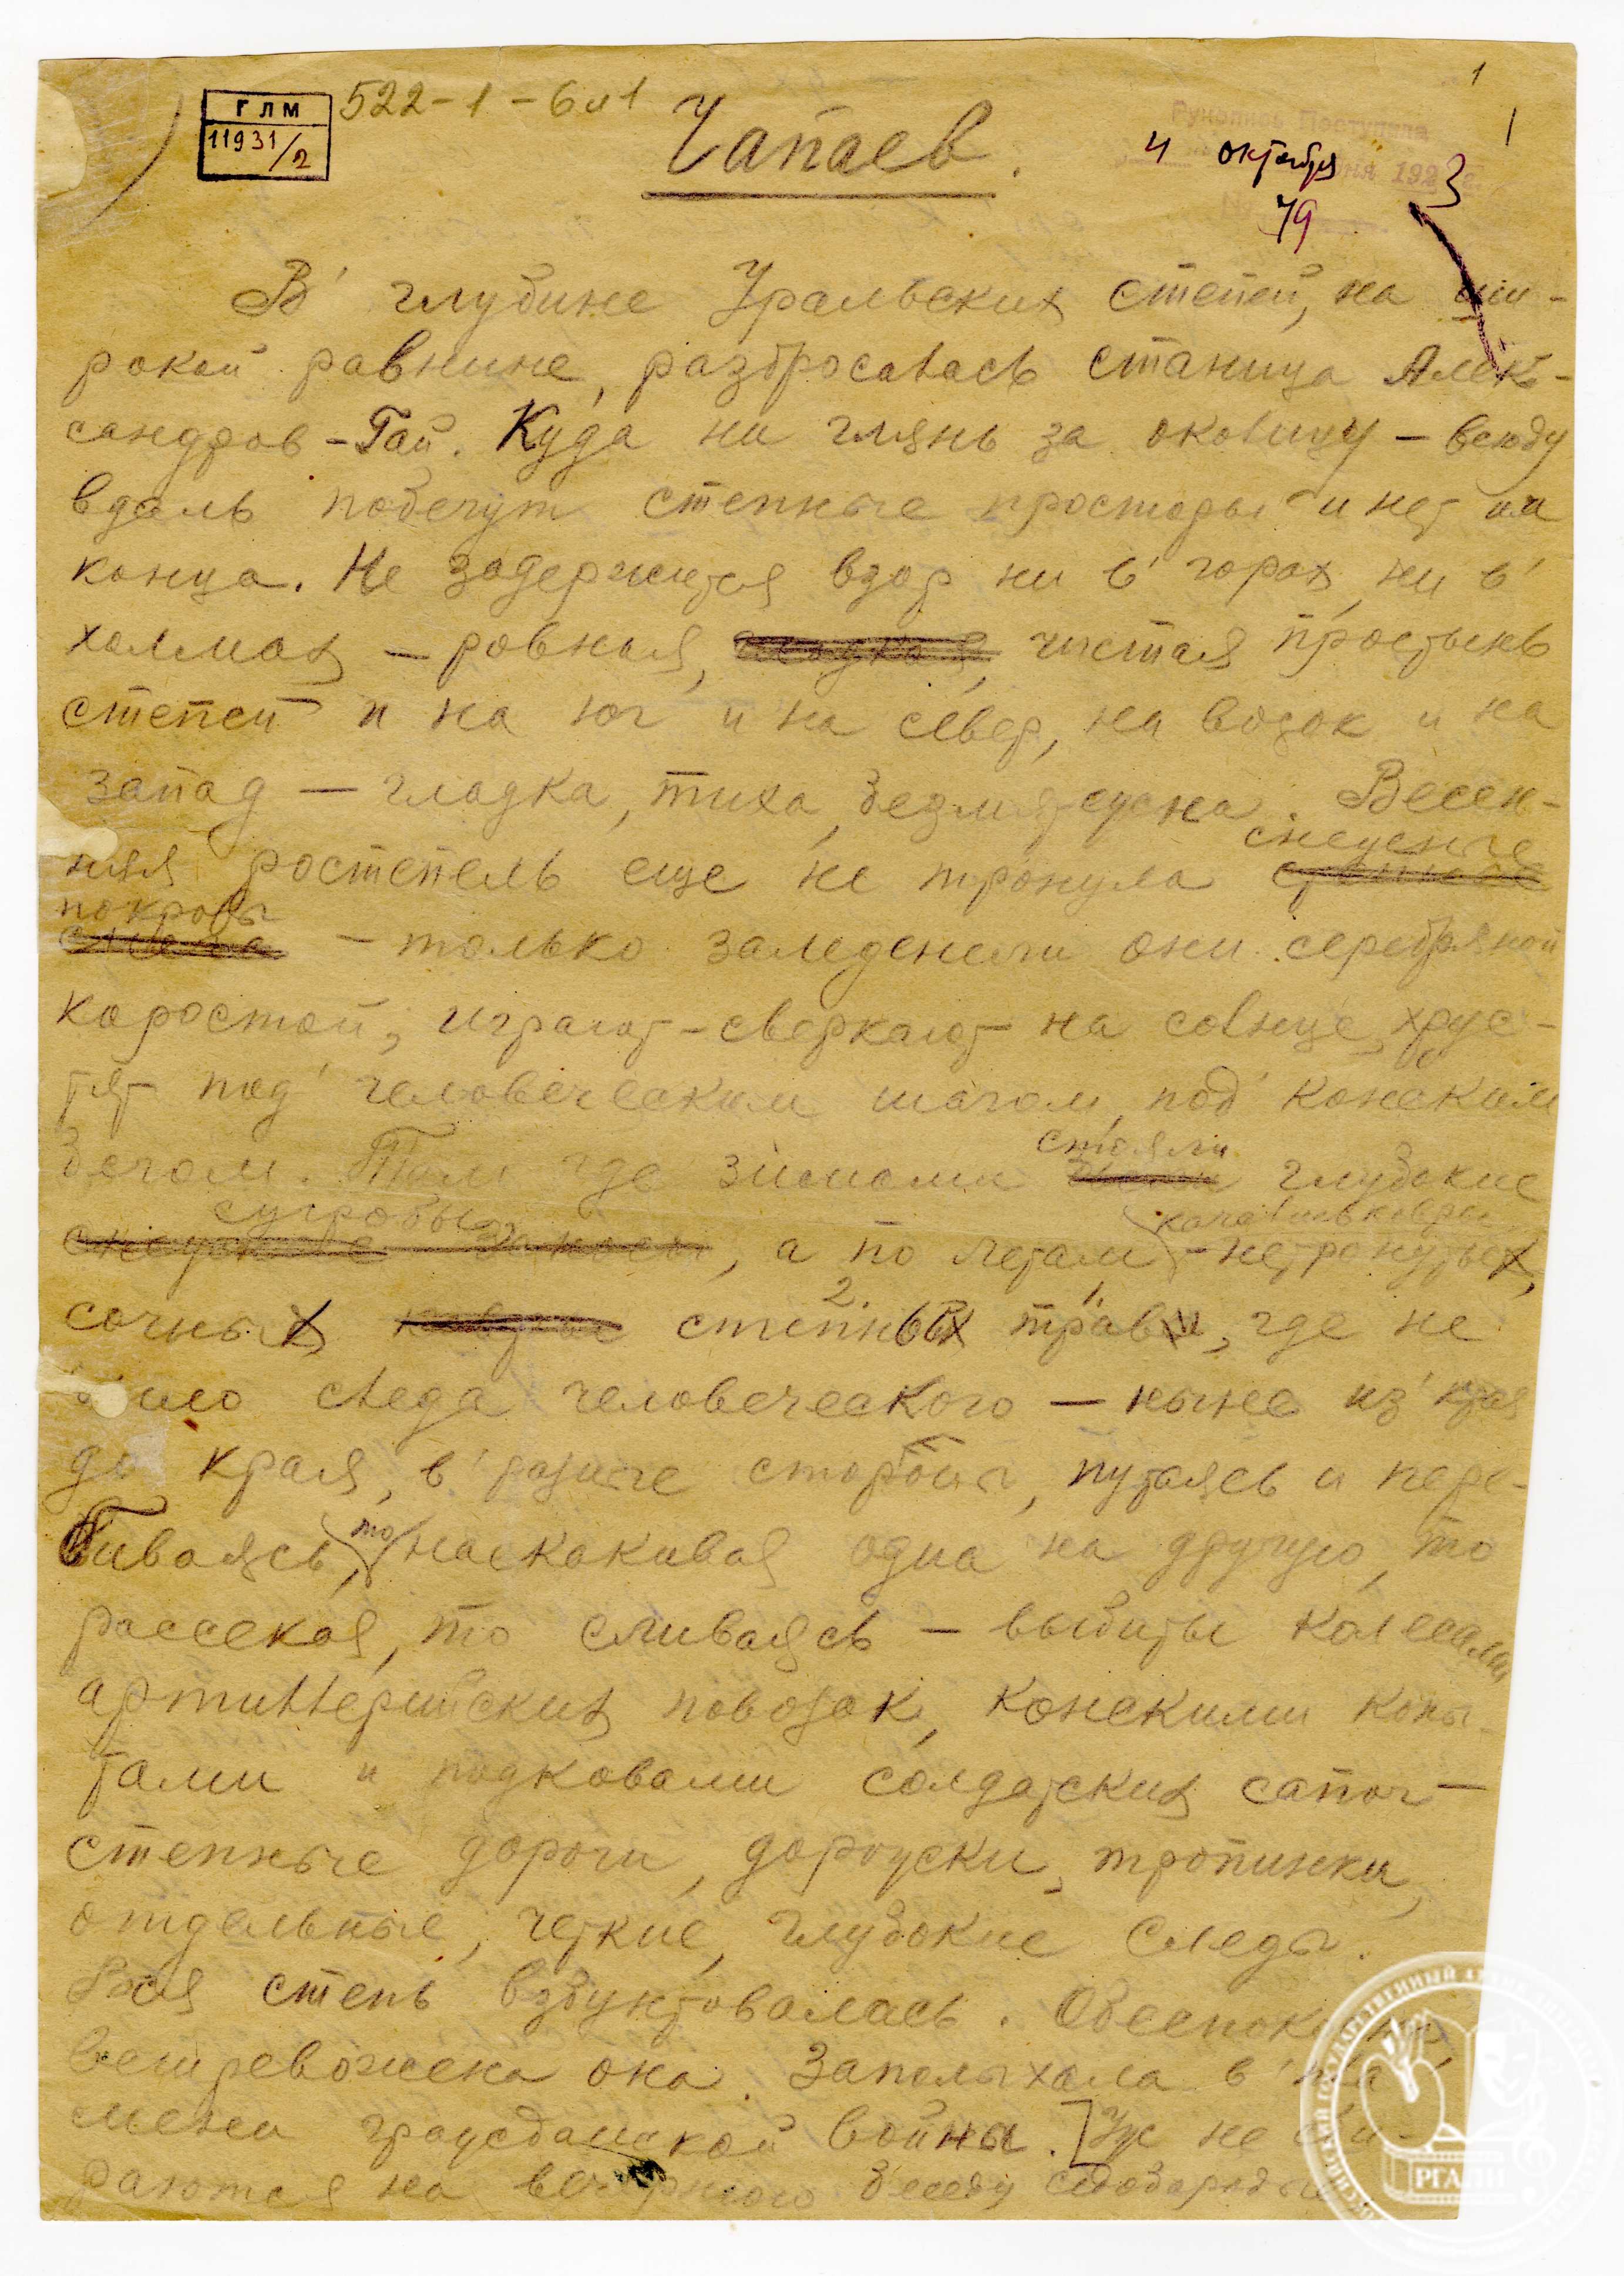 ГЛМ
11931/2
522-1-6 л 1
1
Чапаев.
Рукопись Поступила
4 октября
192
3
79
В' глубине Уральских степей, на ши-
рокой равнине, разбросалась станица Алек-
сандров-Гай. Куда ни глянь за околицу – всюду
вдаль побегут степные просторы и нет им
конца. Не задержится взор ни в' горах, ни в'
холмах – ровная, гладкая, чистая простынь
степей и на юг и на север, на восток и на
запад – гладка, тиха, безмятежна. Весен-
снежные
няя ростепель еще не тронула степные
покровы
снега – только заледенели они серебряной
коростой, играют-сверкают на солнце, хрус-
тят под' человеческим шагом, под' конским
стояли
бегом. Там где зимами глубокие
сугробы
колебались ковры
снежные заносы, а по летам – нетронутых,
2. 1.
сочных степных трав, где не
было следа человеческого – ныне из' края
до края, в' разные стороны, путаясь и пере-
то
биваясь, наскакивая одна на другую, то
рассекая, то сливаясь – выбиты колесами
артиллерийских повозок, конскими копы-
тами и подковами солдатских сапог –
степные дороги, дорожки, тропинки,
отдельные, четкие, глубокие следы.
Вся степь взбунтовалась. Обеспокоена,
встревожена она. Заполыхала в' пла-
мени гражданской войны. [Уж не сби-
раются на вечернюю беседу седобородые
РГАЛИ